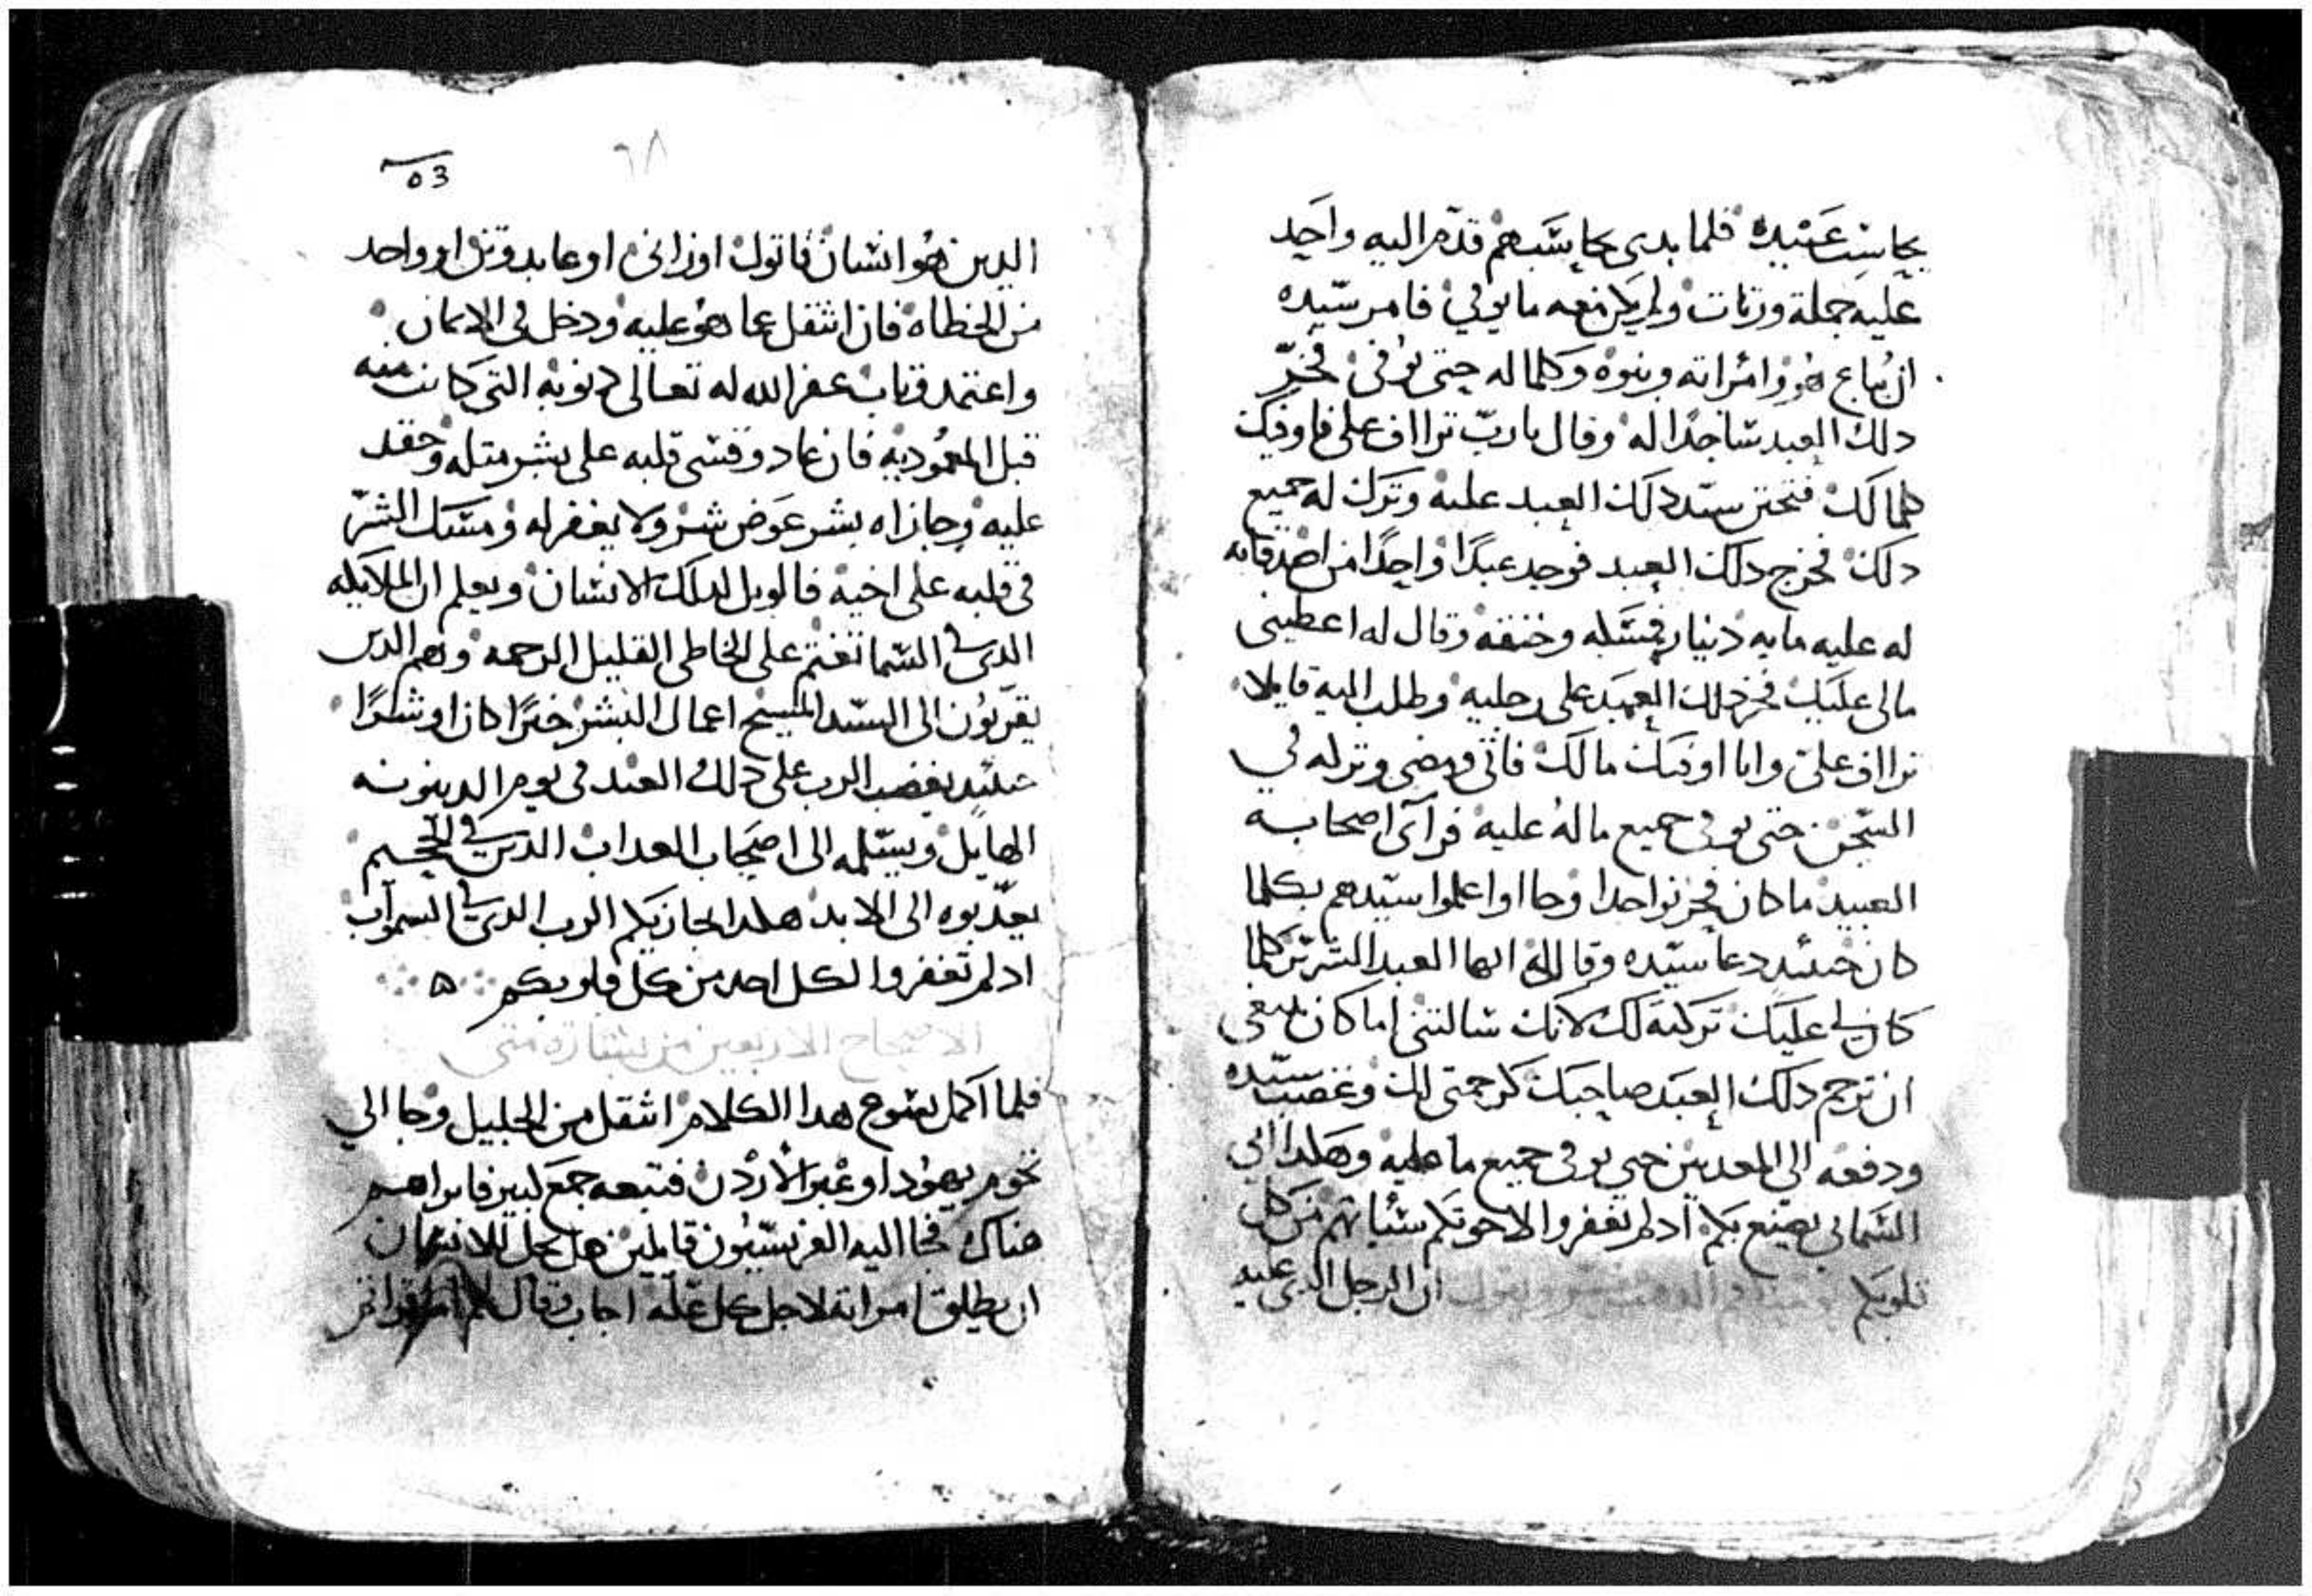 يحاسب عبيده فلما بدى يحاسبهم قدم اليه واحد
عليه جملة وزنات ولم يكن معه ما يوفي فامر سيده
ان يُباع هو وامراته وبنوه وكلما له حتى يوفى فخرّ
دلك العبد ساجدًا له وقال يا ربّ تراأف على فاوفيك
كلما لك فتحنن سيد دلك العبد عليه وترك له جميع
دلك فخرج دلك العبد فوجد عبدًا واحدًا من اصدقايه
له عليه مايه دينار فمسكه وخنقه وقال له اعطيني
مالى عليك فخر دلك العبد على رجليه وطلب اليه قايلا
تراأف على وانا اوفيك مالك فاتى ومضى وتركه في
السجن حتى يوفى جميع ماله عليه فرآى اصحابه
العبيد ما كان فحزنوا جدا وجااوا اعلموا سيدهم بكلما
كان حينئد دعا سيده وقال له ايها العبد الشرير كلما
كان لي عليك تركته لك لانك سالتني اما كان ينبغي
ان ترحم دلك العبد صاحبك كرحمتى لك وغضب سيده
ودفعه الي المعدبين حتي يوفى جميع ما عليه وهكدا ابي
السماىي يصنع بكم اد لم تغفروا لاخوتكم سياتهم من كل
قلوبكم ان الرجل الدي عليه
٦٨
53
الدين هو انسان قاتول او زانى او عابد وتن او واحد
من الخطاه فان انتقل عما هو عليه ودخل في الايمان
واعتمد وتاب غفر الله له تعالى دنوبه التي كانت منه
قبل المعموديه فان عاد وقسى قلبه على بشر متله وحقد
عليه وجازاه بشر عوض شر ولا يغفر له ومسك الشرّ
في قلبه على اخيه فالويل لدلك الانسان ويعلم ان الملايكه
الدى في السما تغتم على الخاطى القليل الرحمه وهم الدين
يقربون الى السيد المسيح اعمال البشر خيرًا كان او شرًا
حينئد يغضب الرب على دلك العبد في يوم الدينونه
الهايل ويسلمه الى اصحاب العداب الدين في الجحيم
يعدّبوه الى الابد هكدا يجازيكم الرب الدى في السموات
اد لم تغفروا لكل احد من كل قلوبكم
الاصحاح الاربعين من بشارة متى
فلما اكمل يسوع هدا الكلام انتقل من الجليل وجا الي
تخوم يهودا وعبر الأردن فتبعه جمع كبير فابراهم
هناك فجا اليه الفريسيون قايلين هل يحل للانسان
ان يطلق امراته لاجل كل علّه اجاب وقال لهم اما قراتم